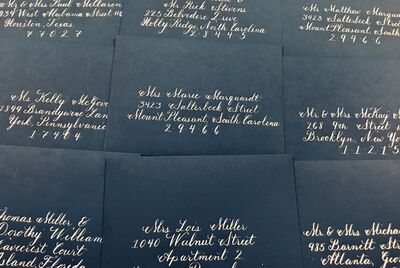 Mr & Mrs Paul
West Alabama Street
Houston, Texas
7 7 0 2 7
Mr Rick Stevens
275 Belvedere Drive
Holly Ridge, North Carolina
2 8 4 4 5
Mr Matthew Marquardt
3423 Salterbeck Street
Mount Pleasant, South
2 9 4 6 6
Ms Kelly McGove
York, Pennsylvania
1 7 4 4
Mrs Marie Marquardt
3423 Salterbeck Street
Mount Pleasant, South Carolina
2 9 4 6 6
Mr & Mrs McKay
268 9th Street
Brooklyn, New York
1 1 2 1 5
Thomas Miller &
Dorothy William
Court
Island, Florida
Mrs Lois Miller
1040 Walnut Street
Apartment 2
Mr & Mrs Michae
985 Barnett Street
Atlanta, Geo